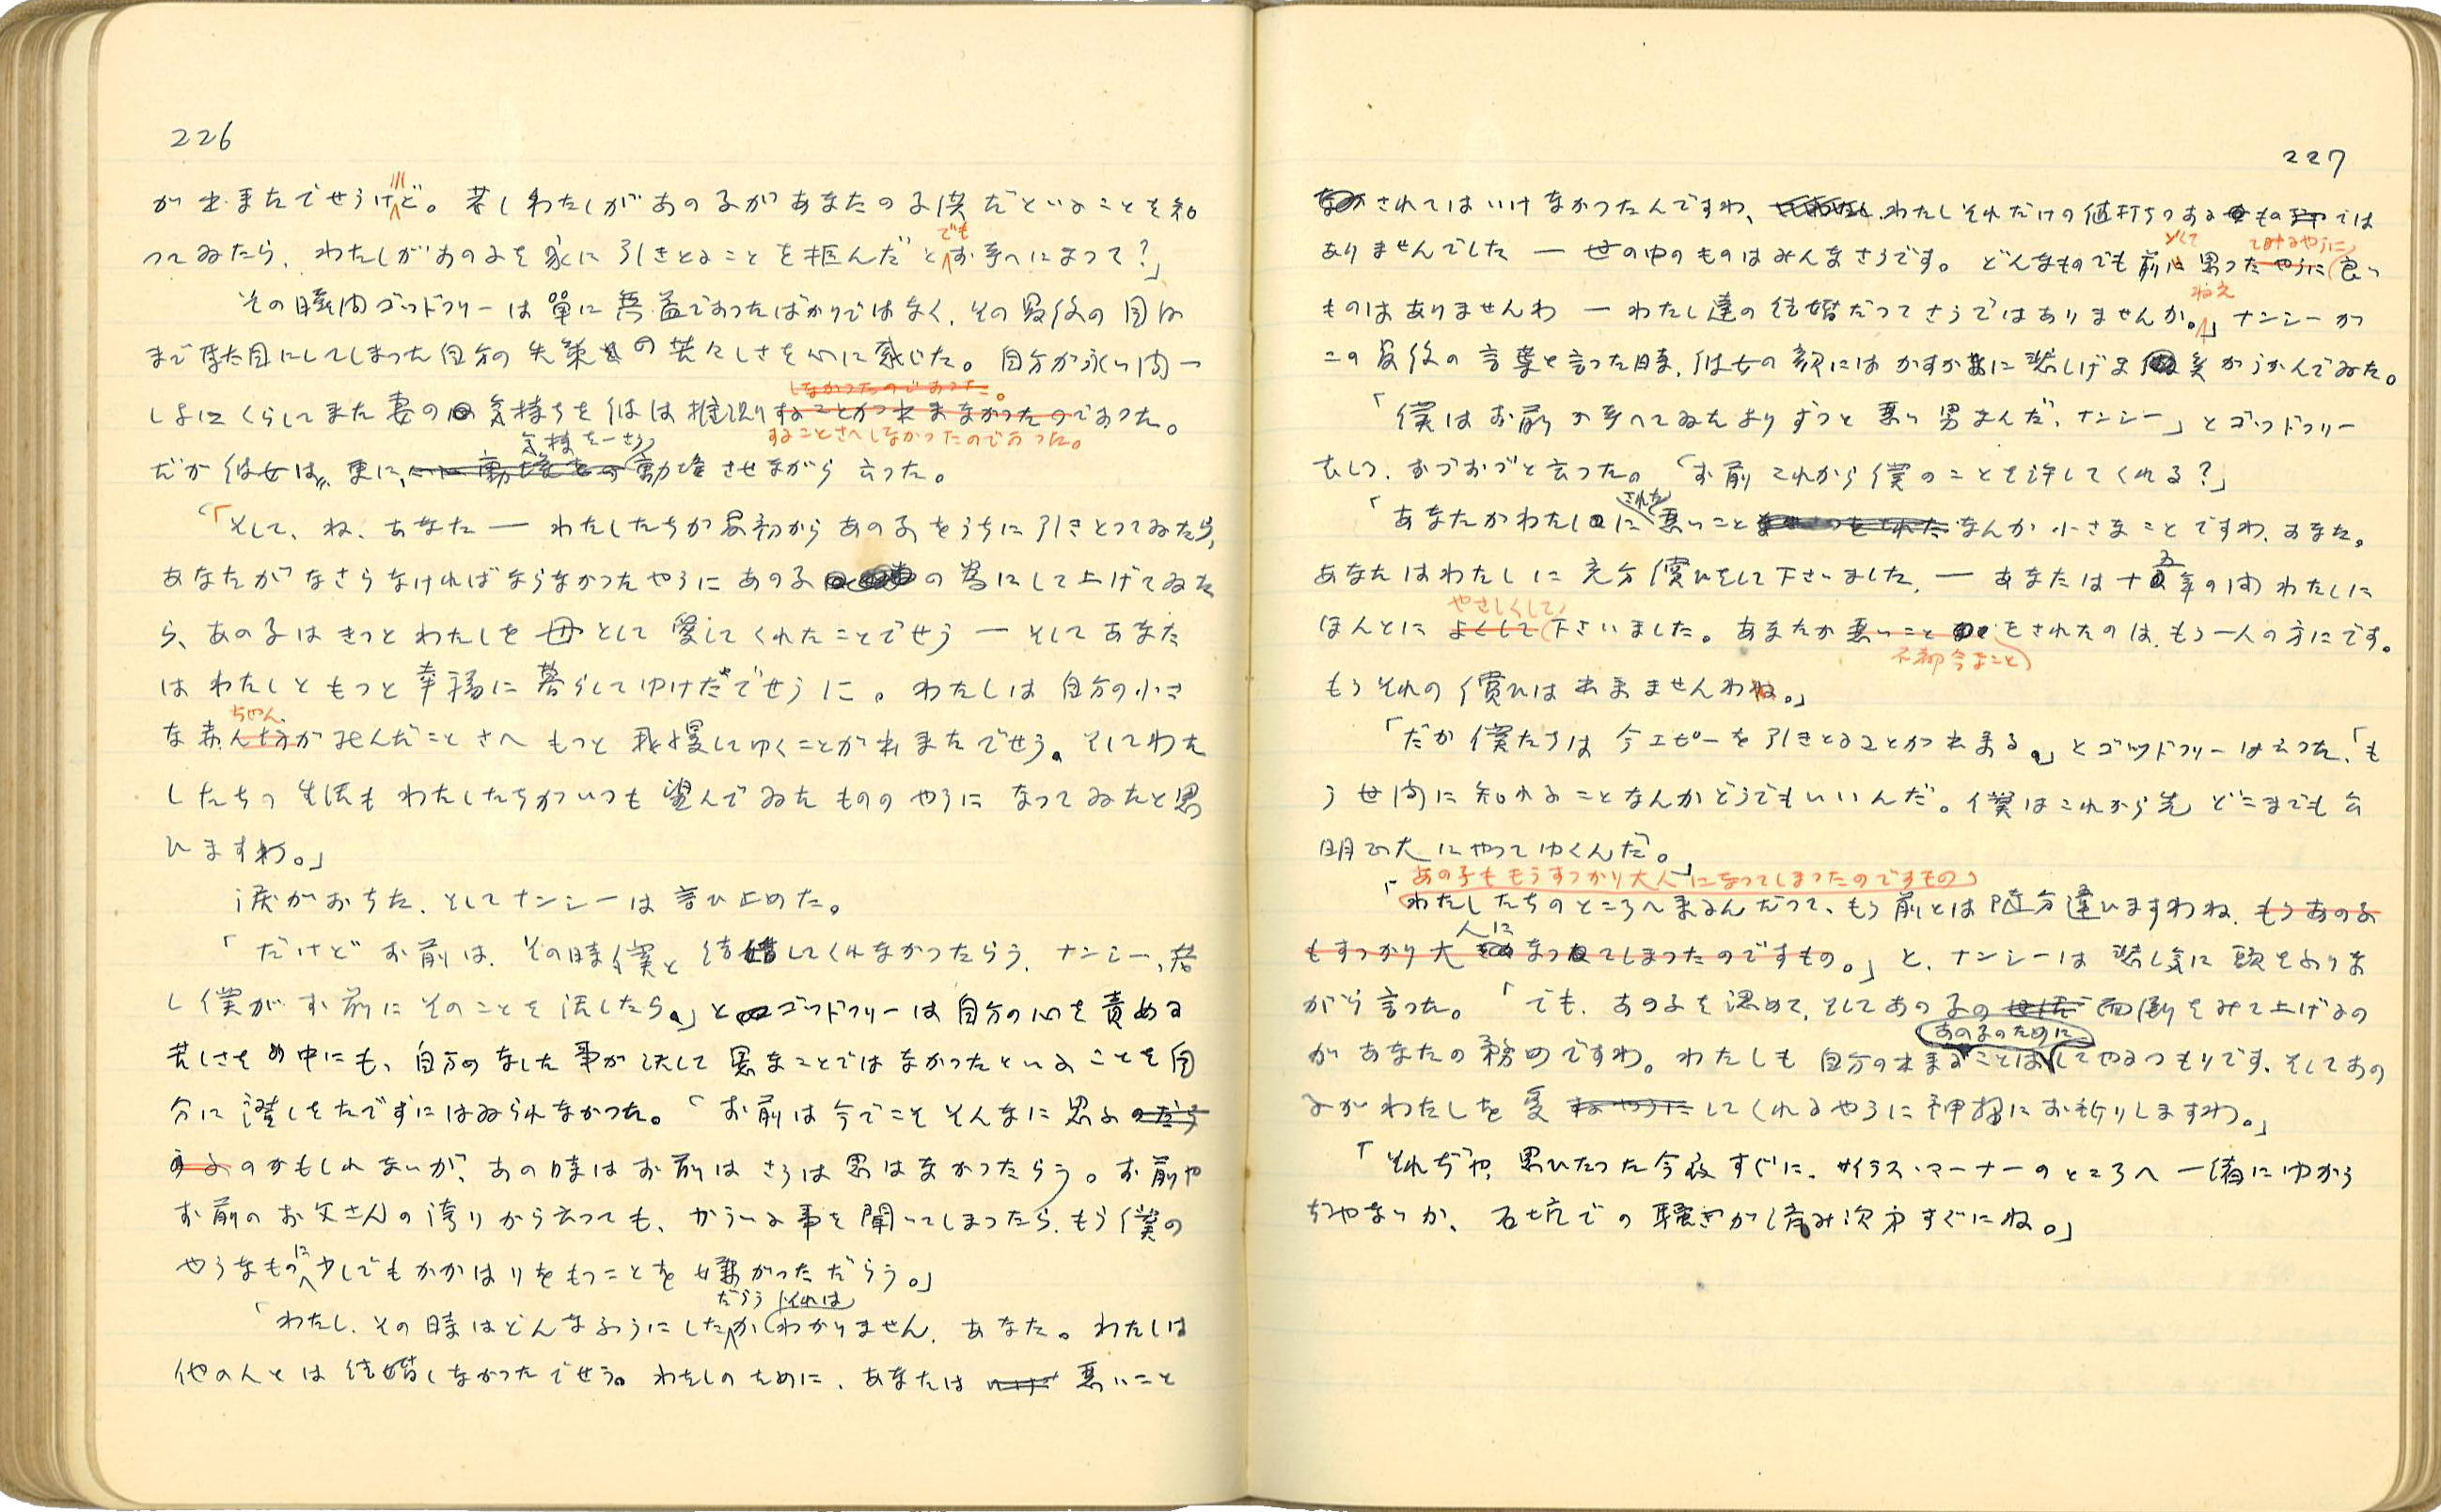 226
が出来たでせうけど。若しわたしがあの子があなたの子供だといふことを知
つてゐたら、わたしがあの子を家に引きとることを拒んだとでもお考へになつて?」
その瞬間ゴッドフリーは単に無益であつたばかりではなく、その最後の目的
まで駄目にしてしまつた自分の失策の苦々しさを心に感じた。自分が永い間一
しなかつたのであつた。
しよにくらしてきた妻の気持ちを彼は推測りすることが出来なかつたのであつた。
することさへしなかつたのであつた。
気持を一さう
だが彼女は、更に、動揺させながら云つた。
「そして、ね、あなた ― わたしたちが最初からあの子をうちに引きとつてゐたら、
あなたがなさらなければならなかつたやうにあの子の為にして上げてゐた
ら、あの子はきつとわたしを母として愛してくれたことでせう ― そしてあなた
はわたしともつと幸福に暮らしてゆけたでせうに。わたしは自分の小さ
ちやん
な赤ん坊が死んだことさへもつと我慢してゆくことが出来たでせう。そしてわた
したちの生活もわたしたちがいつも望んでゐたもののやうになつてゐたと思
ひますわ。」
涙がおちた、そしてナンシーは言ひ止めた。
「だけどお前は、その時僕と結婚してくれなかつたらう、ナンシー、若
し僕がお前にそのことを話したら。」とゴッドフリーは自分の心を責める
苦しさの中にも、自分のなした事が決して愚なことではなかつたといふことを自
分に證しをたてずにはゐられなかつた。「お前は今でこそそんなに思ふのだら
うふのかもしれないが、あの時はお前はさうは思はなかつたらう。お前や
お前のお父さんの誇りから云つても、かういふ事を聞いてしまつたら、もう僕の
やうなものに少しでもかかはりをもつことを嫌がつただらう。」
だらう それは
「わたし、その時はどんなふうにしたかわかりません、あなた。わたしは
他の人とは結婚しなかつたでせう。わたしのために、あなたは 悪いこと
227
されてはいけなかつたんですわ、わたしそれだけの値打ちのあるものでは
ありませんでした ― 世の中のものはみんなさうです。どんなものでも前に思つたやうに良い
以て てゐるやうに
ものはありませんわ ― わたし達の結婚だつてさうではありませんかねえ。」ナンシーが
この最後の言葉を言つた時、彼女の顔にはかすかに悲しげな笑がうかんでゐた。
「僕はお前が考へてゐたよりずつと悪い男なんだ、ナンシー」とゴッドフリー
は、おづおづと云つた。「お前これから僕のことを許してくれる?」
「あなたがわたしにされた悪いことなんか小さなことですわ、あなた。
あなたはわたしに充分償ひをして下さいました、― あなたは十五年の間わたしに
やさしくして
ほんとによくして下さいました。あなたが悪いことをされたのは、もう一人の方にです。
不都合なこと
もうそれの償ひは出来ませんわね。」
「だが僕たちは今エピーを引きとることが出来る。」とゴッドフリーは云つた、「も
う世間に知れることなんかどうでもいいんだ。僕はこれから先どこまでも公
明正大にやつてゆくんだ。」
あの子ももうすつかり大人になつてしまつたのですもの
「わたしたちのところへ来るんだつて、もう前とは随分違ひますわね、もうあの子
もすつかり大人になつてしまつたのですもの。」と、ナンシーは悲し気に頭をふりな
がら言つた。「でも、あの子を認めて、そしてあの子の面倒をみて上げるの
あの子のために
があなたの務めですわ。わたしも自分の出来ることはしてやるつもりです、そしてあの
子がわたしを愛してくれるやうに神様にお祈りしますわ。」
「それぢや、思ひたつた今夜すぐに、サイラス・マーナーのところへ一緒にゆかう
ぢやないか、石坑での騒ぎが済み次第すぐにね。」